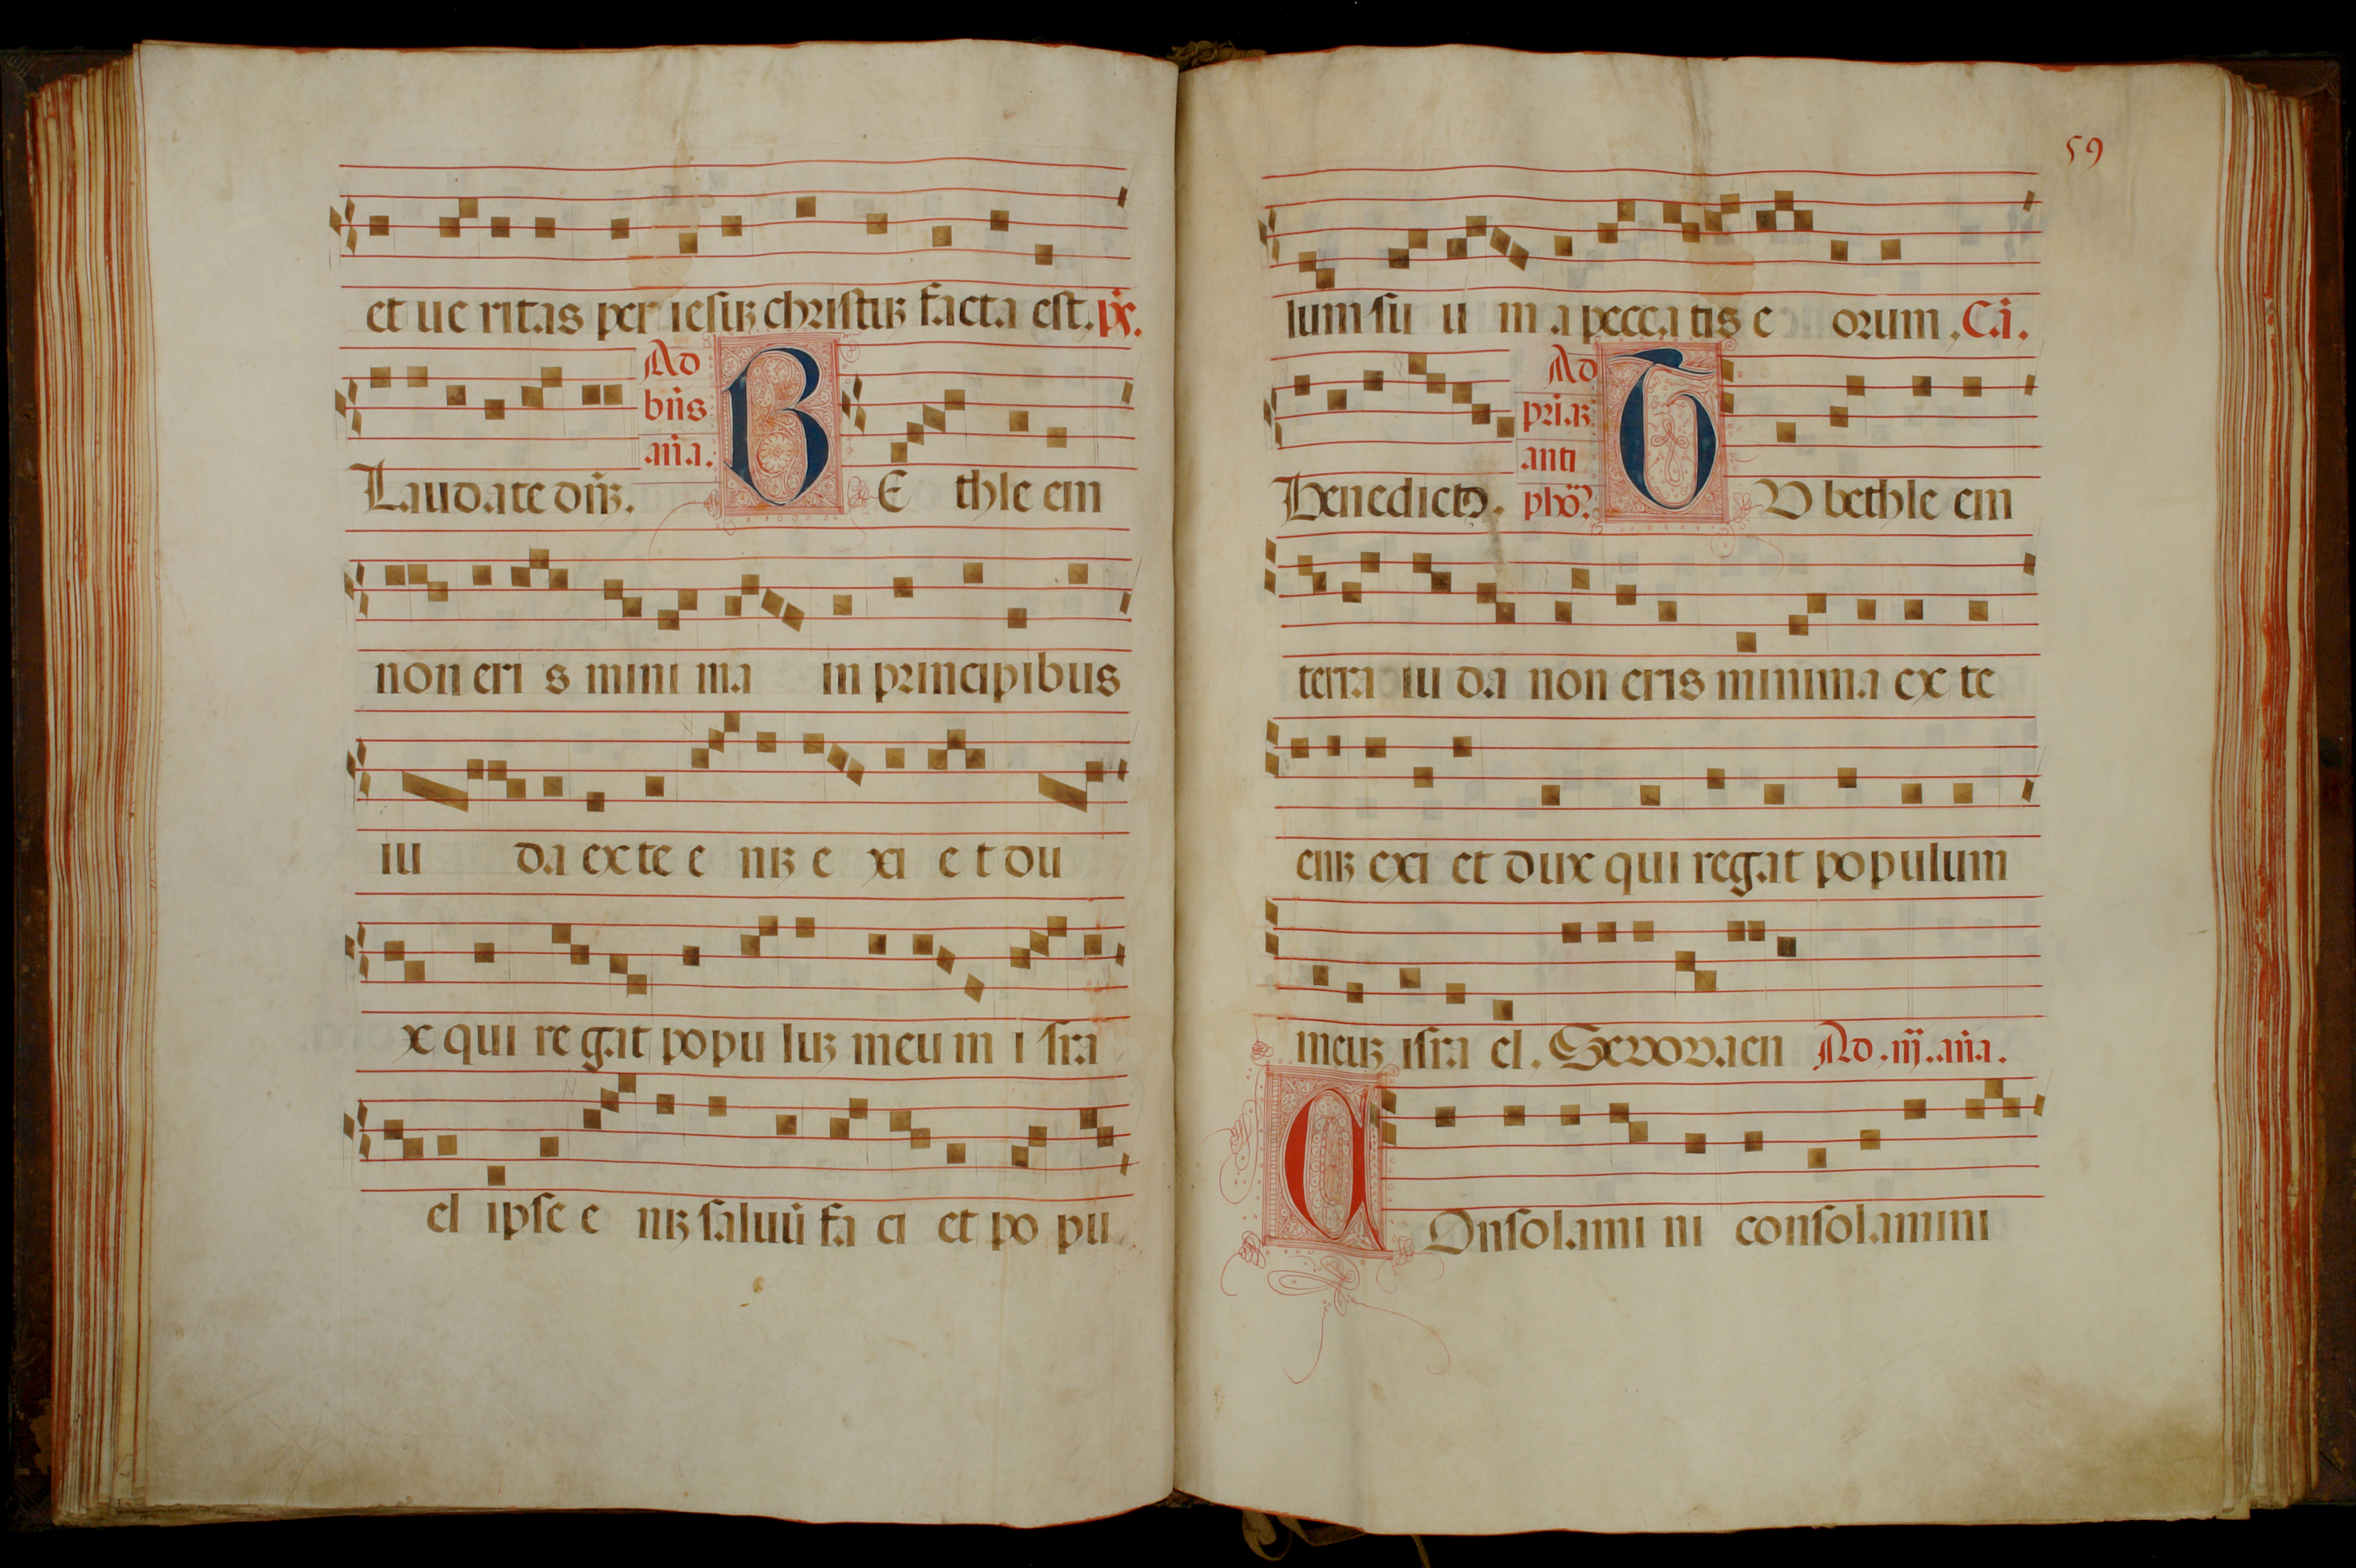 et ue ritas per iesuꝫ christuꝫ facta est. p̄s.
Laudate dn̄ꝫ. Ad bn̄s an̄a. BE thle em
non eri s mini ma in principibus
iu da ex te e niꝫ e xi e t du
x qui re gat popu luꝫ meu m i sra
el ipse e niꝫ saluū fa ci et po pu
59
lum su u m a pecca tis e orum. Cā.
Benedictꝰ. Ad pri̅aꝫ anti pho᷑. TU bethle em
terra iu da non eris minima ex te
eniꝫ exi et dux qui regat populum
meuꝫ isra el. Seuouaen Ad .iij. an̄a.
COnsolami ni consolamini